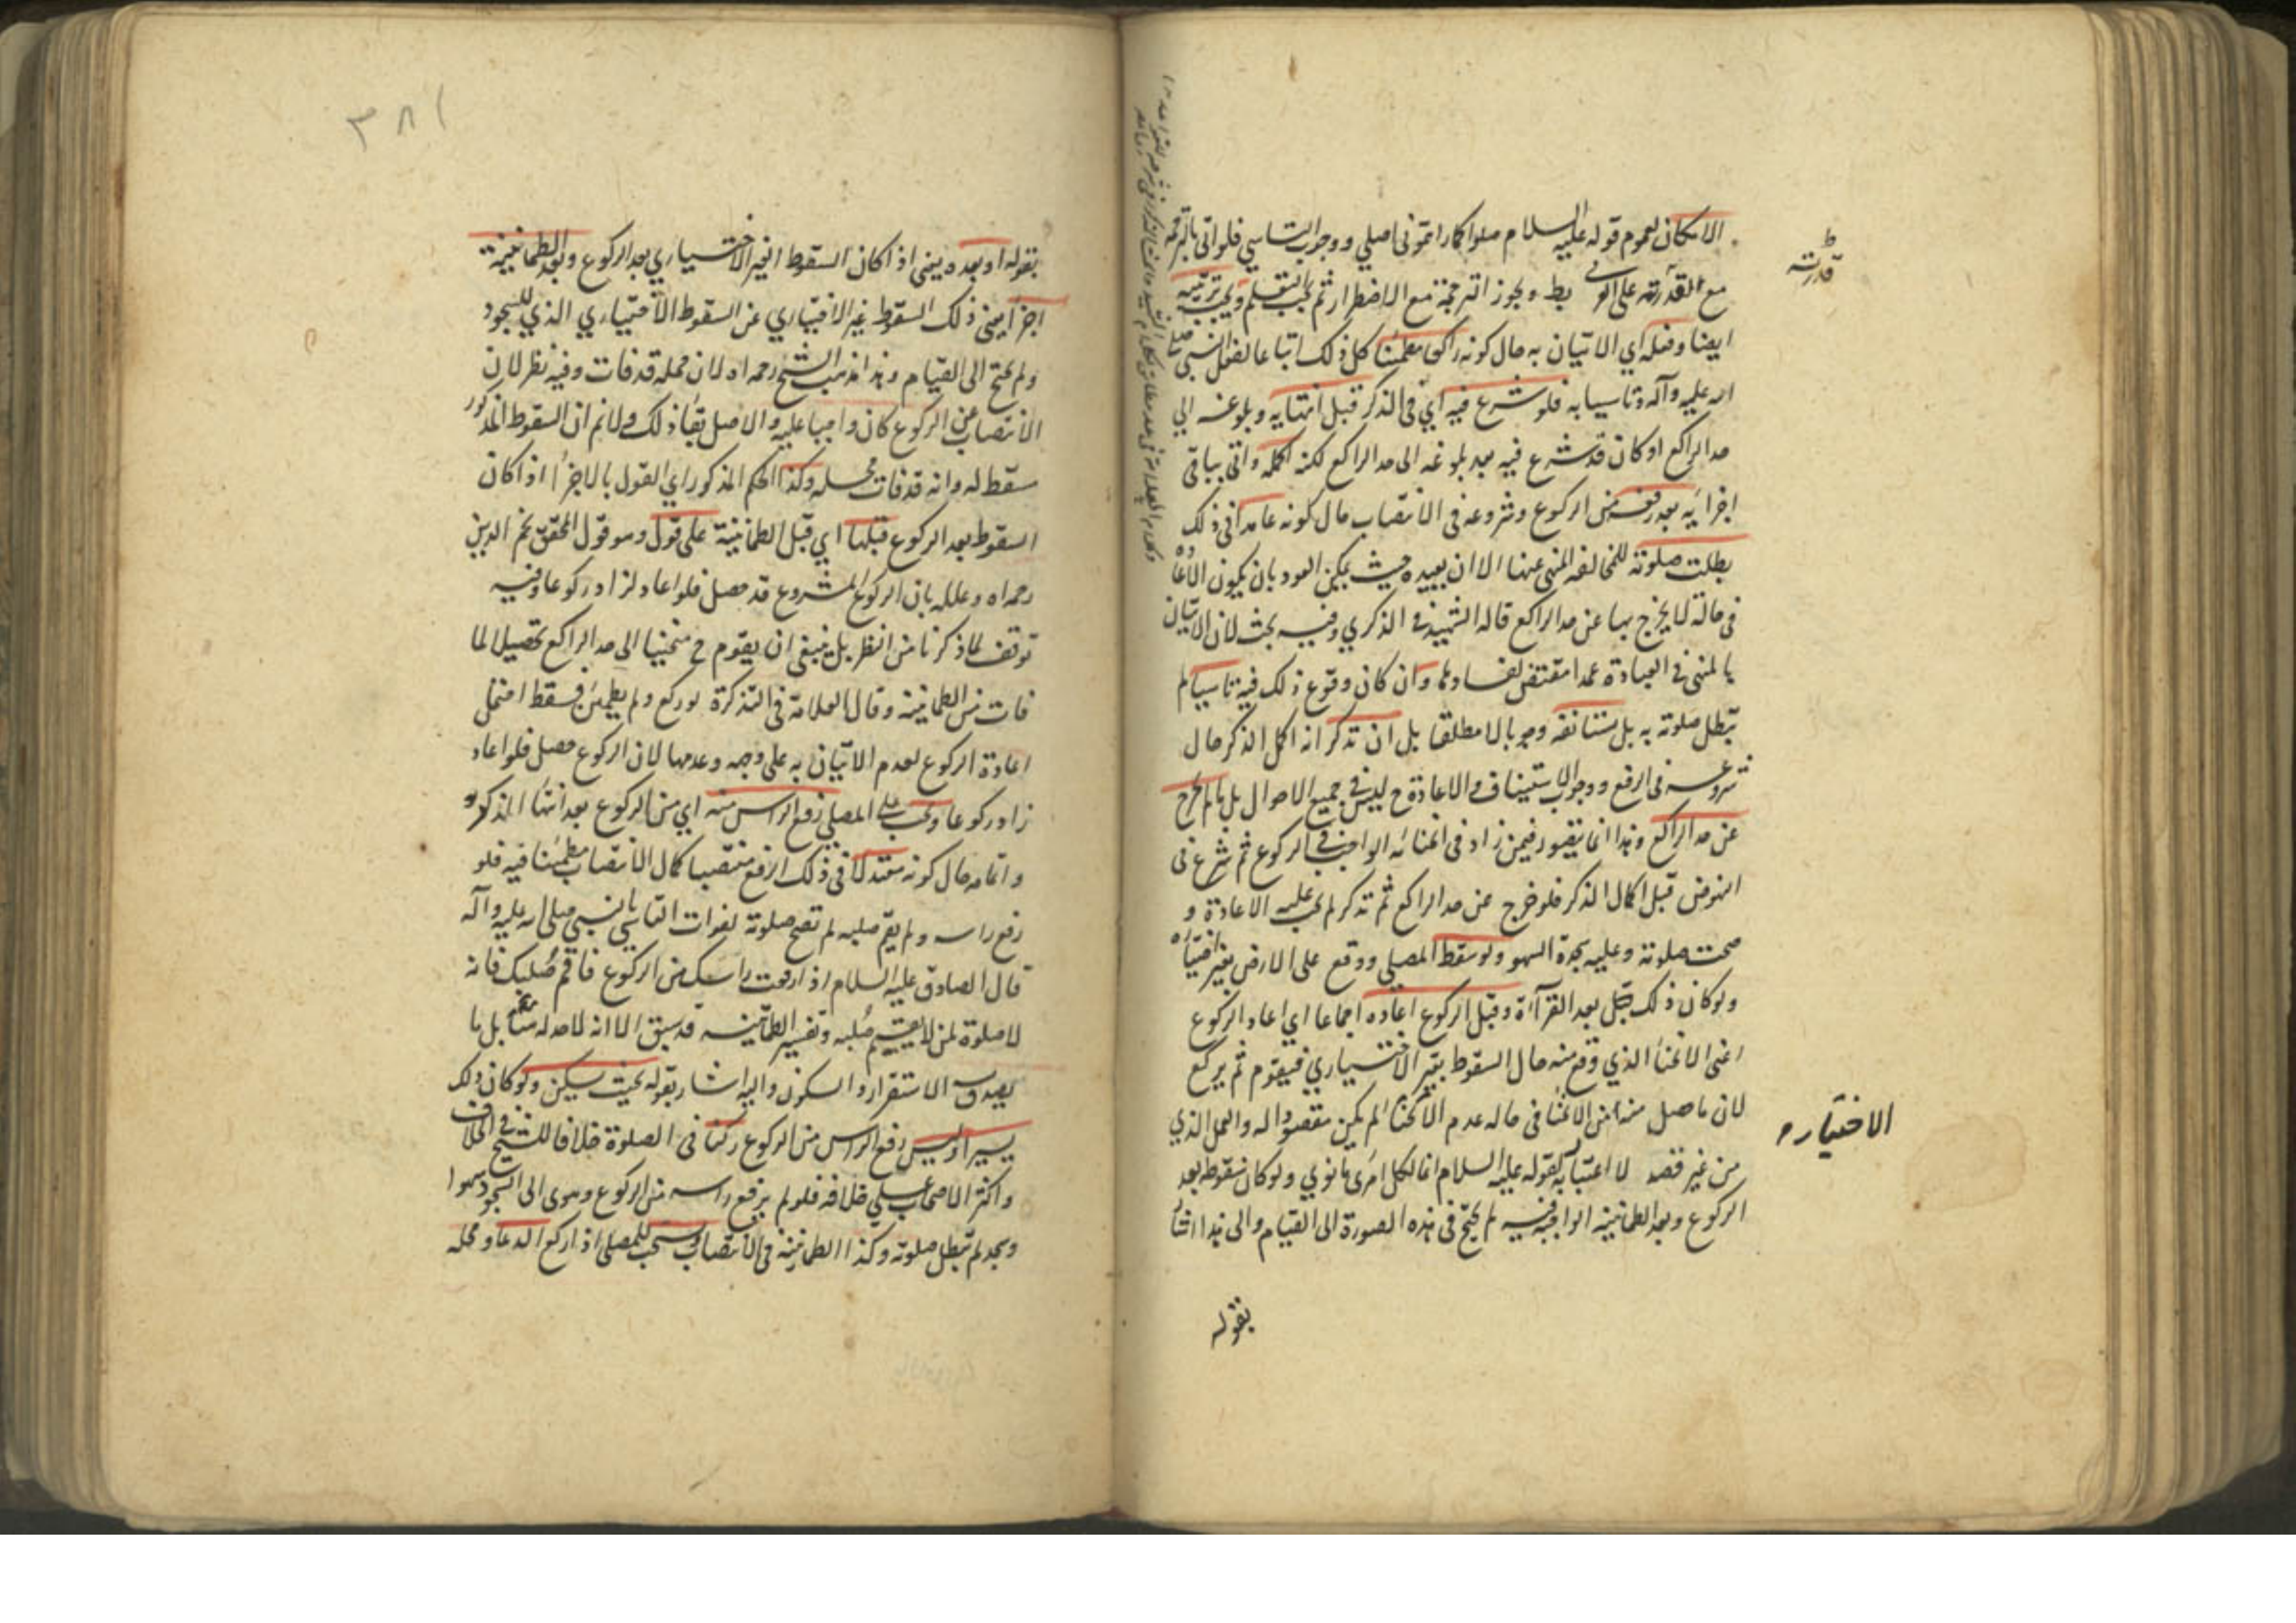 الامكان لعموم قوله عليه السلام صلوا كما رايتموني اصلي ووجوب التاسي فلو اتى بالترجمة
مع القدرة على العربي بطل ويجوز الترجمة مع الاضطرار ثم يجب التعلم ويجب عربيته
ايضا وفعله اي الاتيان به حال كونه راكعا مطمئنا كل ذلك اتباعا لفعل النبي صلى
الله عليه وآله وتاسيا به فلو شرع فيه اي في الذكر قبل انتهايه وبلوغه الي
حد الراكع او كان قد شرع فيه بعد بلوغه الى حد الراكع لكنه اكمله واتى بباقي
اجزايه بعد رفعه من الركوع وشروعه في الانتصاب حال كونه عامدا في ذلك
بطلت صلوته للمخالفة المنهي عنها الا ان يعيده حيث يمكن العود بان يكون الاعادة
في حالة لا يخرج بها عن حد الراكع قاله الشهيد في الذكري وفيه بحث لان الاتيان
بالمنهي في العبادة عمدا مقتض لفسادها وان كان وقوع ذلك فيه ناسيا لم
تبطل صلوته به بل يستانفه وجوبا لا مطلقا بل ان تذكر انه اكمل الذكر حال
شروعه في الرفع ووجوب الاستيناف والاعادة ح ليس في جميع الاحوال بل ما لم يخرج
عن حد الراكع وهذا انما يتصور فيمن زاد في انحنائه الواجب في الركوع ثم شرع في
النهوض قبل اكمال الذكر فلو خرج عن حد الراكع ثم تذكر لم يجب عليه الاعادة و
صحت صلوته وعليه سجدة السهو ولو سقط المصلي ووقع على الارض بغير اختياره
ولو كان ذلك بعد القرآءة وقبل الركوع اعاده اجماعا اي اعاد الركوع
اعني الانحناء الذي وقع منه حال السقوط بغير الاختياري فيقوم ثم يركع
لان ما حصل منه من الانحناء في حاله عدم الانحناء لم يكن مقصودا له والعمل الذي
من غير قصد لا اعتبار به لقوله عليه السلام انما لكل امرئ ما نوي ولو كان سقوطه بعد
الركوع وبعد الطمانينة الواجبة فيه لم يحتج في هذه الصورة الى القيام والى هذا اشار
بقوله
قدرته
الاختيار م
٣٨١
بقوله او بعده يعني اذا كان السقوط الغير الاختسياري بعد الركوع وبعد الطمانينة
اجزأ يعني ذلك السقوط غير الاختياري عن السقوط الاختياري الذي للسجود
ولم يحتج الى القيام وهذا مذهب الشيخ رحمه الله لان محله قد فات وفيه نظر لان
الانتصاب عن الركوع كان واجبا عليه والاصل بقاء ذلك ولا نم ان السقوط المذكور
مسقط له وانه قد فات محله وكذا الحكم المذكور اي القول بالاجزاء اذا كان
السقوط بعد الركوع قبلها اي قبل الطمانينة على قول وهو قول المحقق نجم الدين
رحمه الله وعلله بان الركوع المشروع قد حصل فلو اعاد لزاد ركوعا وفيه
توقف لما ذكرنا من النظر بل ينبغي ان يقوم ح منحنيا الى حد الراكع تحصيلا لما
فات من الطمانينة وقال العلامة في التذكرة لو ركع ولم يطمئن فسقط احتمل
اعادة الركوع لعدم الاتيان به على وجهه وعدمها لان الركوع حصل فلو اعاد
زاد ركوعا ويجب على المصلي رفع الراس منه اي من الركوع بعد انتهاء الذكر
واتمامه حال كونه معتدلا في ذلك الرفع منتصبا كمال الانتصاب مطمئنا فيه فلو
رفع راسه ولم يقم صلبه لم تصح صلوته لفوات التاسي بالنبي صلى الله عليه وآله
قال الصادق عليه السلام اذا رفعت راسك من الركوع فاقم صلبك فانه
لا صلوة لمن لا يقيم صلبه وتفسير الطمانينة قد سبق الا انه لا حد له هنا بل ما
يصدق به الاستقرار والسكون واليه اشار بقوله بحيث يسكن ولو كان ذلك
يسيرا وليس رفع الراس من الركوع ركنا في الصلوة خلافا للشيخ في الخلاف
واكثر الاصحاب على خلافه فلو لم يرفع راسه من الركوع وهوى الى السجود سهوا
وسجد لم تبطل صلوته وكذا الطمانينة في الانتصاب ويستحب للمصلي اذا ركع الدعاء ومحله